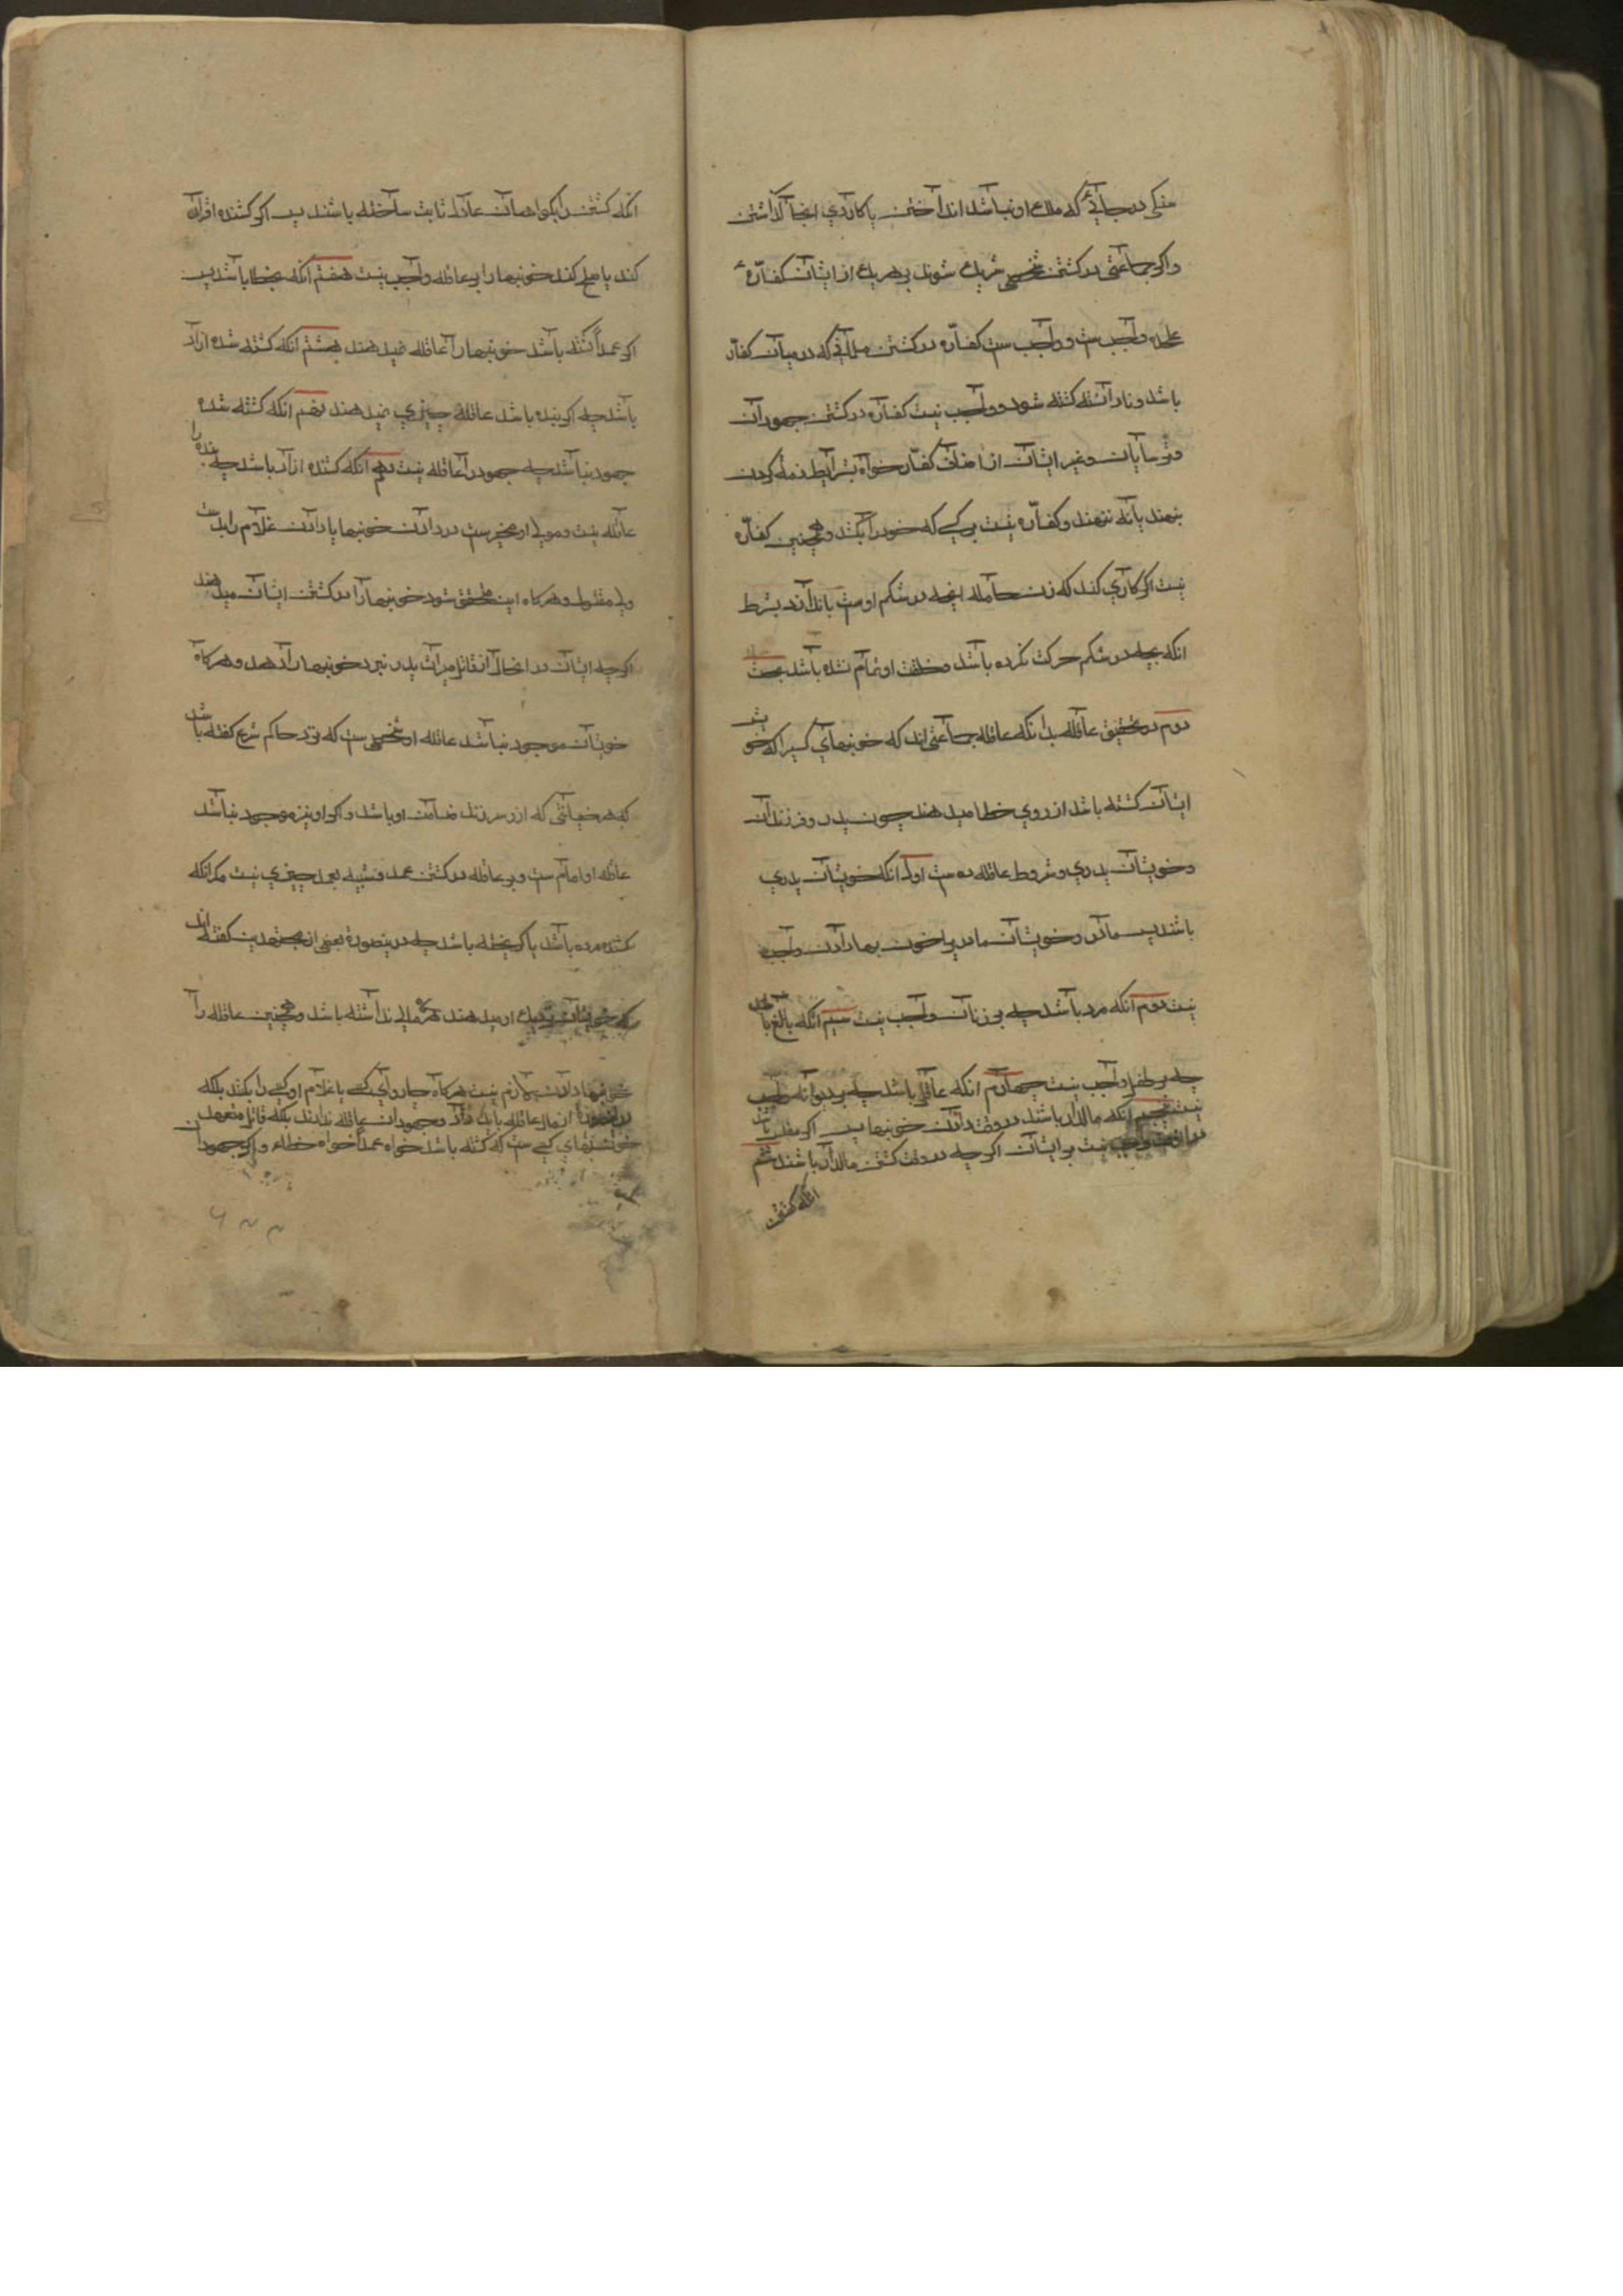 سنگی در جائی که ملك او نباشد انداختن یا کاردی اینجا گذاشتن
واکر جماعتی در کشتن شخصی شریك شوند بر هریك از ایشان کفاره
علیحده واجب ست و واجب ست کفاره در کشتن مسلمانی که در میان کفار
باشد و نادانسته کشته شود و واجب نیست کفاره در کشتن جهودان
و ترسایان و غیر ایشان از اصناف کفار خواه بشرایط ذمه کردن
بنهند یا نه ننهند و کفاره نیست بر کسی که خود را بکشد و همچنین کفاره
نیست اکر کاری کند که زن حامله آنچه در شکم اوست باندازد بشرط
انکه بچه در شکم حرکت نکرده باشد و خلقت او تمام نشده باشد بحث
دوم در تحقیق عاقله بدانکه عاقله جماعتی اند که خونبهای کسی را که خویش
ایشان کشته باشد از روی خطا میدهند چون پدر و فرزندان
و خویشان پدری و شروط عاقله ده ست اول انکه خویشان پدری
باشند پس مادر و خویشان مادر را خون بها دادن واجب
نیست دوم انکه مرد باشد چه بر زنان واجب نیست سیم انکه بالغ باشد
چه بر طفل واجب نیست چهارم انکه عاقل باشد چه بر دیوانه واجب
نیست پنجم انکه مالدار باشد در وقت دادن خونبها پس اکر مفلس باشند
در آنوقت واجب نیست بر ایشان اکر چه در وقت کشتن مالدار باشند ششم
انکه کشتن
انکه کشتن را بکواهان عادل ثابت ساخته باشند پس اکر کشنده اقرار
کند یا صلح کند خونبها را بر عاقله واجب نیست هفتم انکه بخطا باشد پس
اکر عمداً کشته باشد خونبها را عاقله نمیدهند هشتم انکه کشته شده ازاد
باشد چه اکر بنده باشد عاقله چیزی نمیدهند نهم انکه کشته شده
جهود نباشد چه جهود را عاقله نیست دهم انکه کشنده ازاد باشد چه بنده را
عاقله نیست و مولی او مخیر ست در دادن خونبها یا دادن غلام را بدست
ولی مقتول و هرکاه این محقق شود خونبها را در کشتن ایشان میدهند
اکرچه ایشان در انحال از قاتل میراث پدر نبرد خونبها را دهند و هرکاه
خویشان موجود نباشد عاقله او شخصی ست که نزد حاکم شرع کفته باشد
که هر خیانتی که از و سر زند ضامن او باشد و اکر او نیز موجود نباشد
عاقله او امام ست و بر عاقله در کشتن عمد و شبیه بعمد چیزی نیست مکر انکه
کشنده مرده باشد یا کریخته باشد چه درینصورة بعضی از مجتهدین کفته اند
که خویشان نزدیك او میدهند اکر مالی نداشته باشد و همچنین عاقله را
خونبها دادن لازم نیست هرکاه چاروای کسی یا غلام او کسی را بکشد بلکه
از مال عاقله باید داد و جهودان عاقله ندارند بلکه قاتل متعهد
خونبهای کسی ست که کشته باشد خواه عمداً خواه خطاء و اکر جهودان